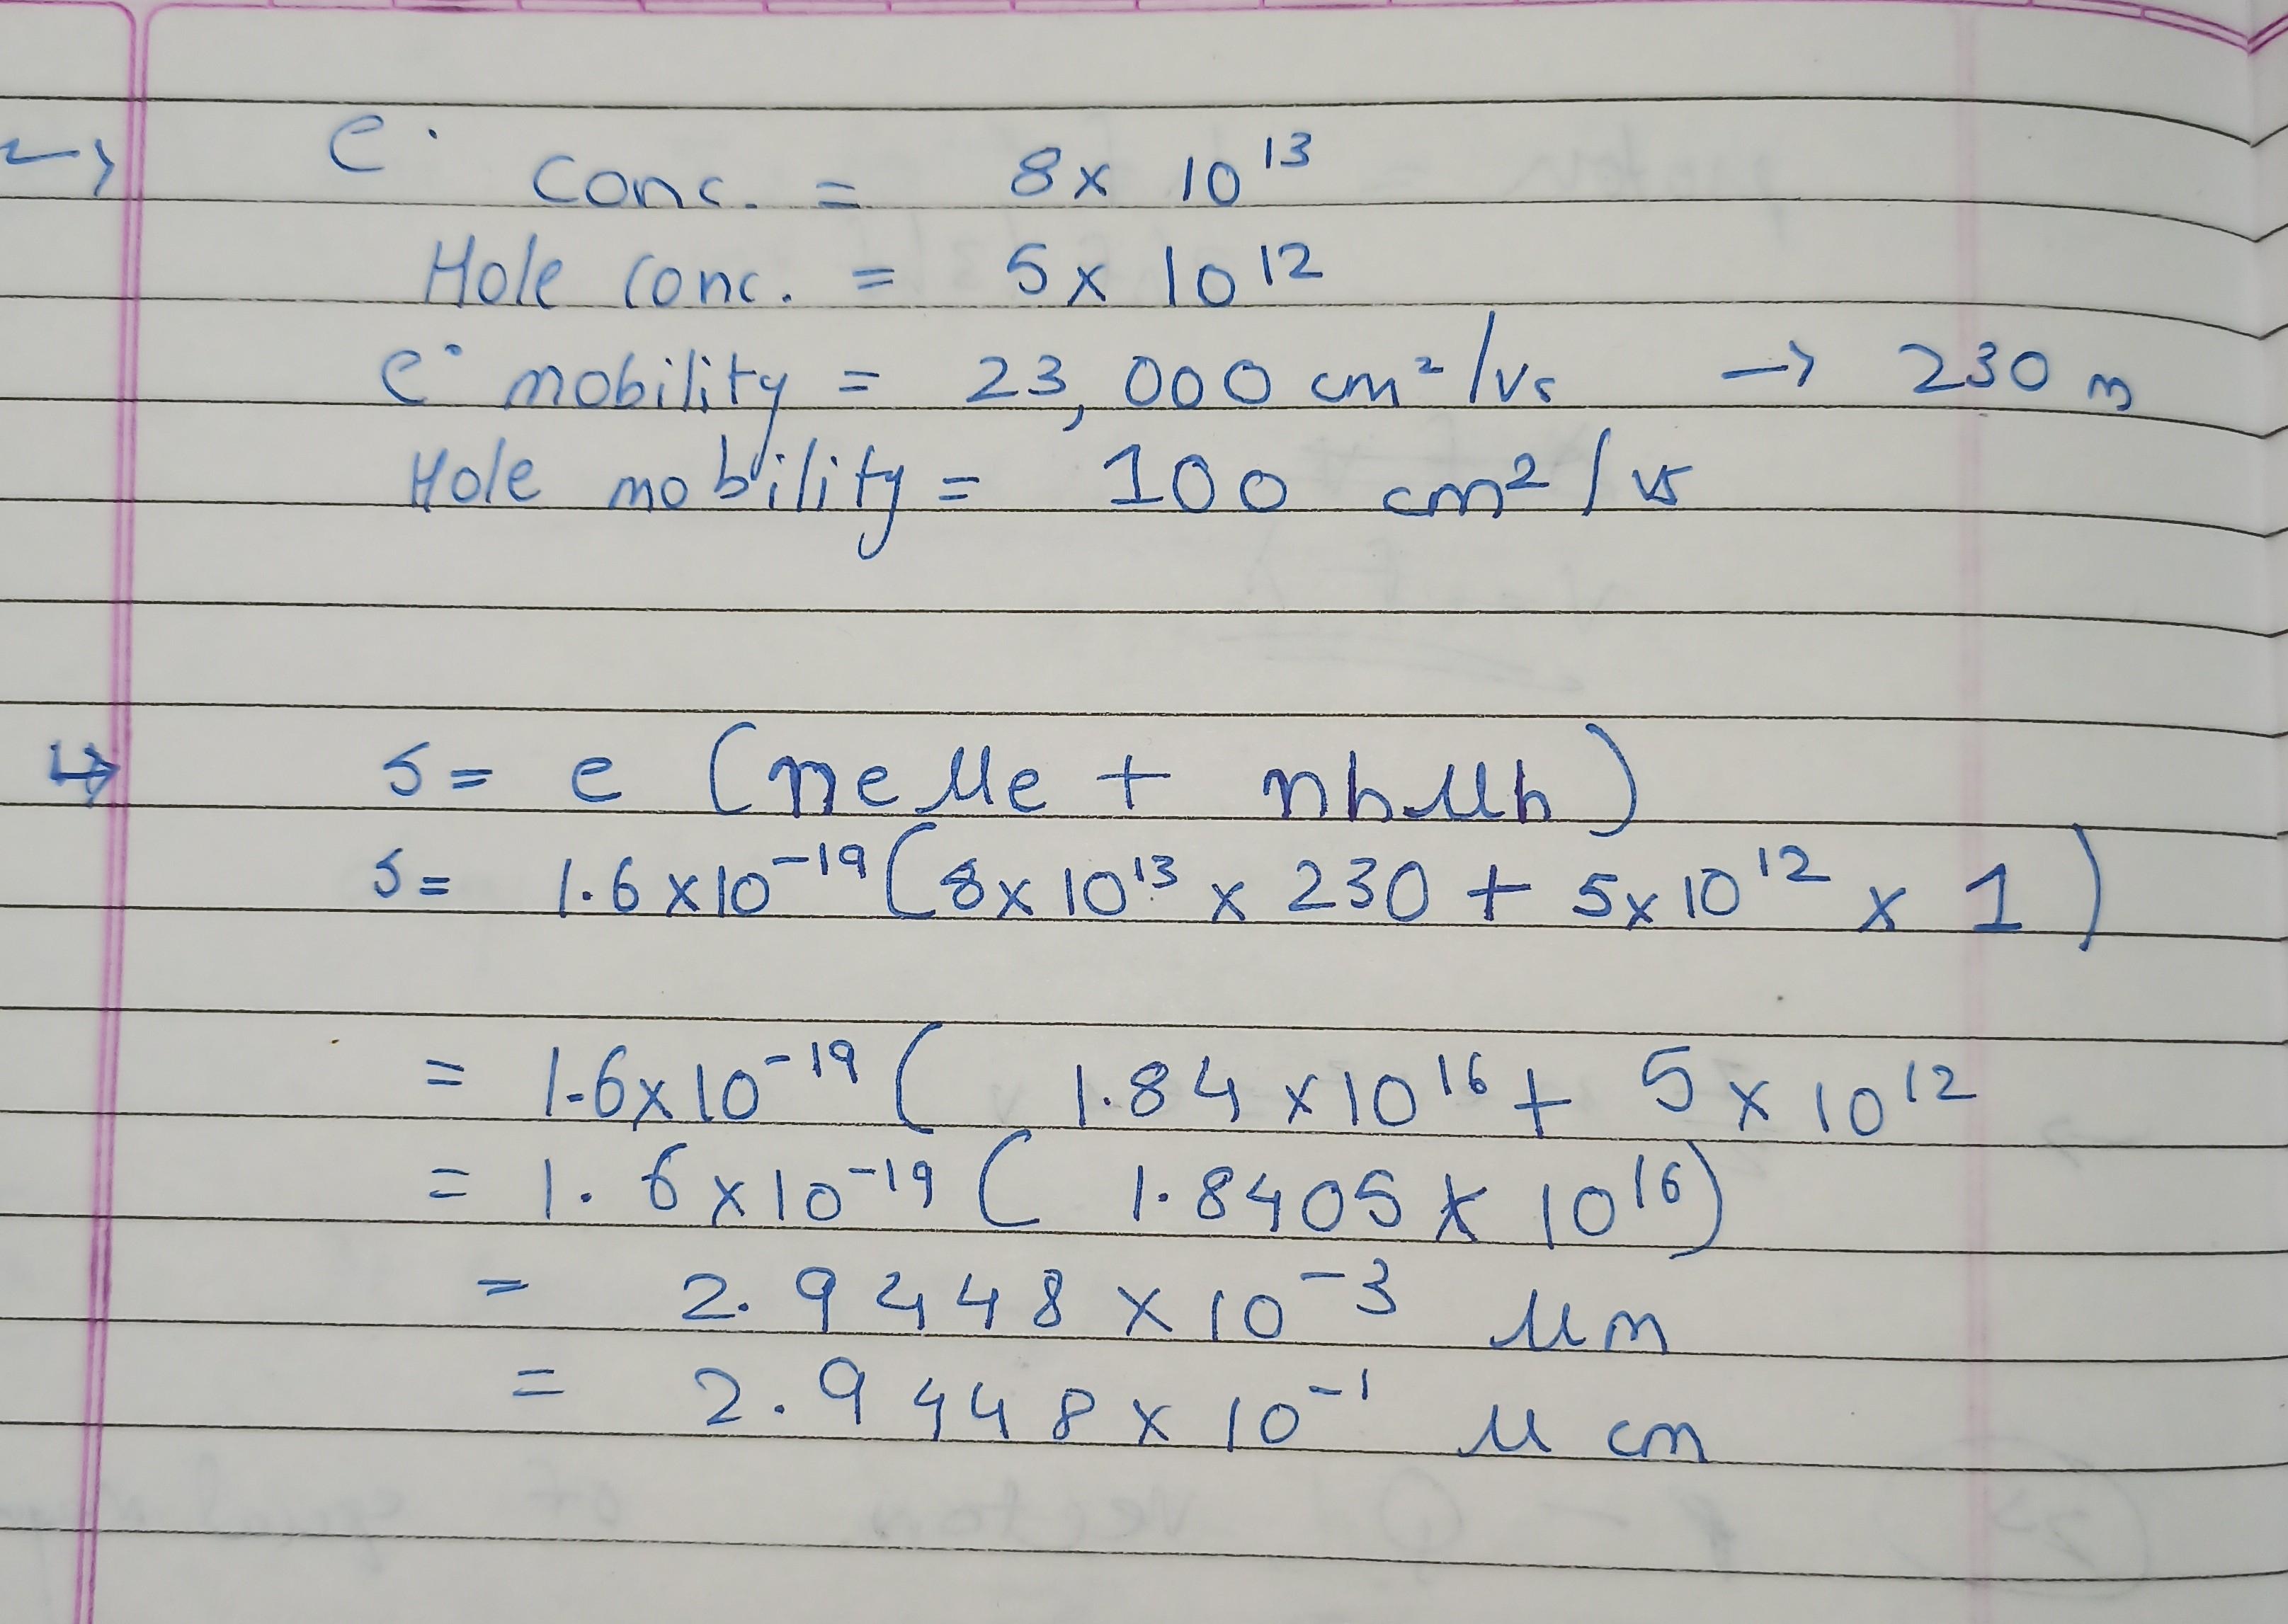 e⁻ conc. = 8 x 10¹³
Hole conc. = 5 x 10¹²
e⁻ mobility = 23,000 cm²/vs → 230 m
Hole mobility = 100 cm²/vs
↳ s = e (neμe + nhμh)
s = 1.6 x 10⁻¹⁹ (8 x 10¹³ x 230 + 5 x 10¹² x 1)
= 1.6 x 10⁻¹⁹ ( 1.84 x 10¹⁶ + 5 x 10¹²
= 1.6 x 10⁻¹⁹ ( 1.8405 x 10¹⁶)
= 2.9448 x 10⁻³ μm
= 2.9448 x 10⁻¹ μ cm